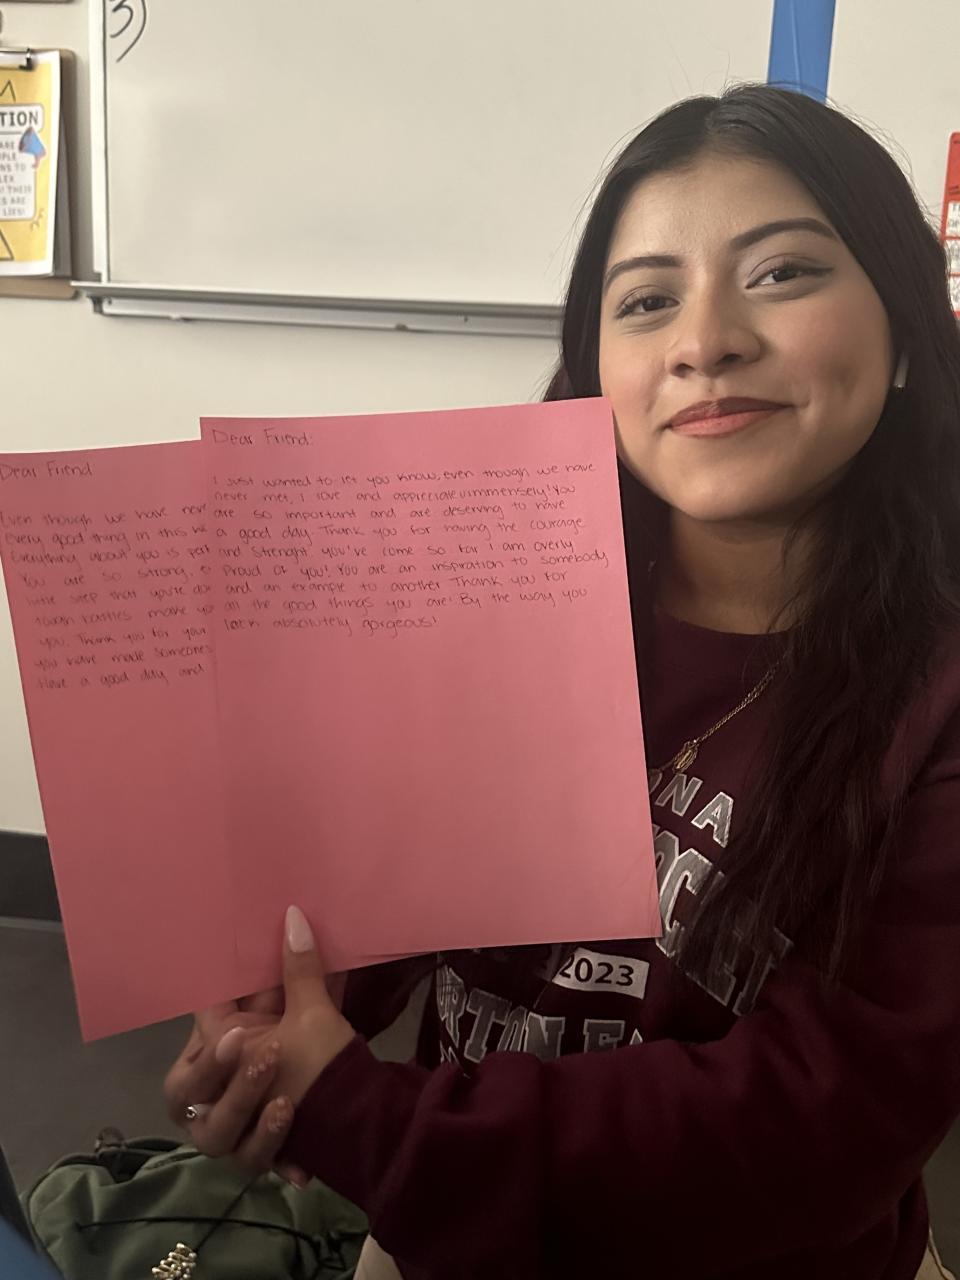 3)
TION
ARE
PLE
NS TO
LEX
THEIR
S ARE
LIES!
Dear Friend
Even though we have nev
every good thing in this w
Everything about you is perf
You are so strong, e
little step that you're do
tough battles make yo
you. Thank you for your
you have made someones
Have a good day and
Dear Friend:
I just wanted to let you know, even though we have
never met, I love and appreciate u immensely! You
are so important and are deserving to have
a good day. Thank you for having the courage
and strenght, you've come so far I am overly
Proud of you! You are an inspiration to somebody
and an example to another Thank you for
all the good things you are! By the way you
look absolutely gorgeous!
ONA
OCKET
2023
URTON E